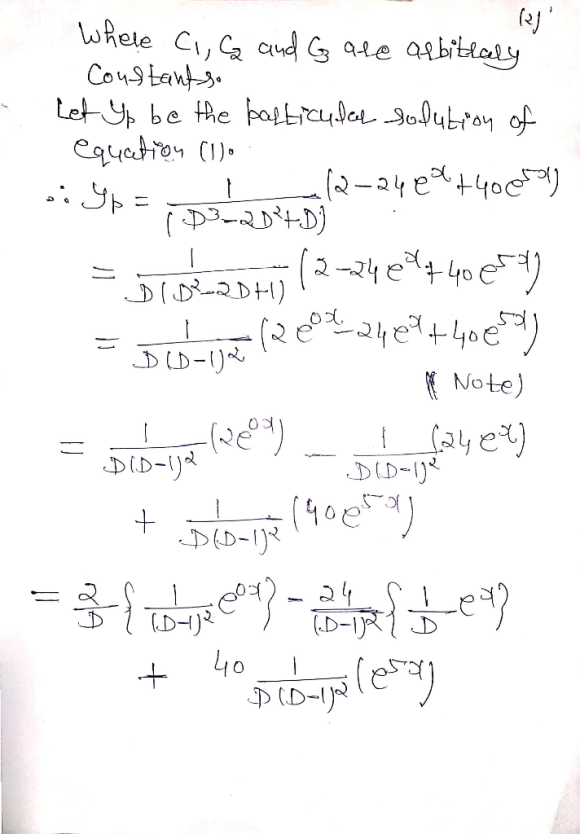 (2)
Where C1, C2 and C3 are arbitrary
Constants.
Let yp be the particular solution of
equation (1).
∴ yp = 1/(D³-2D²+D) (2-24e^x+40e^5x)
= 1/D(D²-2D+1) (2-24e^x+40e^5x)
= 1/D(D-1)² (2e^0x-24e^x+40e^5x)
(Note)
= 1/D(D-1)² (2e^0x) - 1/D(D-1)² (24e^x)
+ 1/D(D-1)² (40e^5x)
= 2/D {1/(D-1)² e^0x} - 24/(D-1)² {1/D e^x}
+ 40 1/D(D-1)² (e^5x)